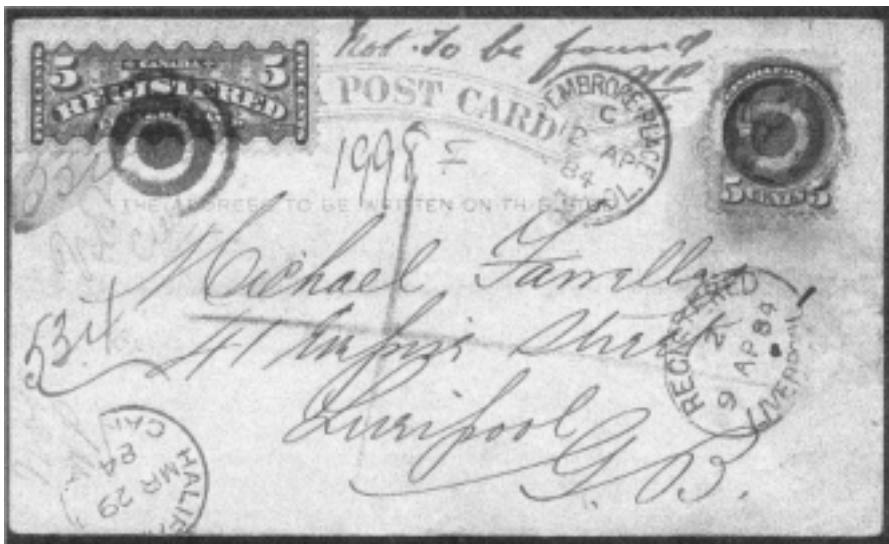 Not to be found
5 CANADA 5
REGISTERED
POST CARD
EMBROKE PLACE
C
2 AP
84
L'POOL
5 CENTS 5
1998
THE ADDRESS TO BE WRITTEN ON THIS SIDE
Michael
534
41 Street
Liverpool
G. B.
REGISTERED
9 AP 84
LIVERPOOL
HALIFA
MR 29
84
CAN